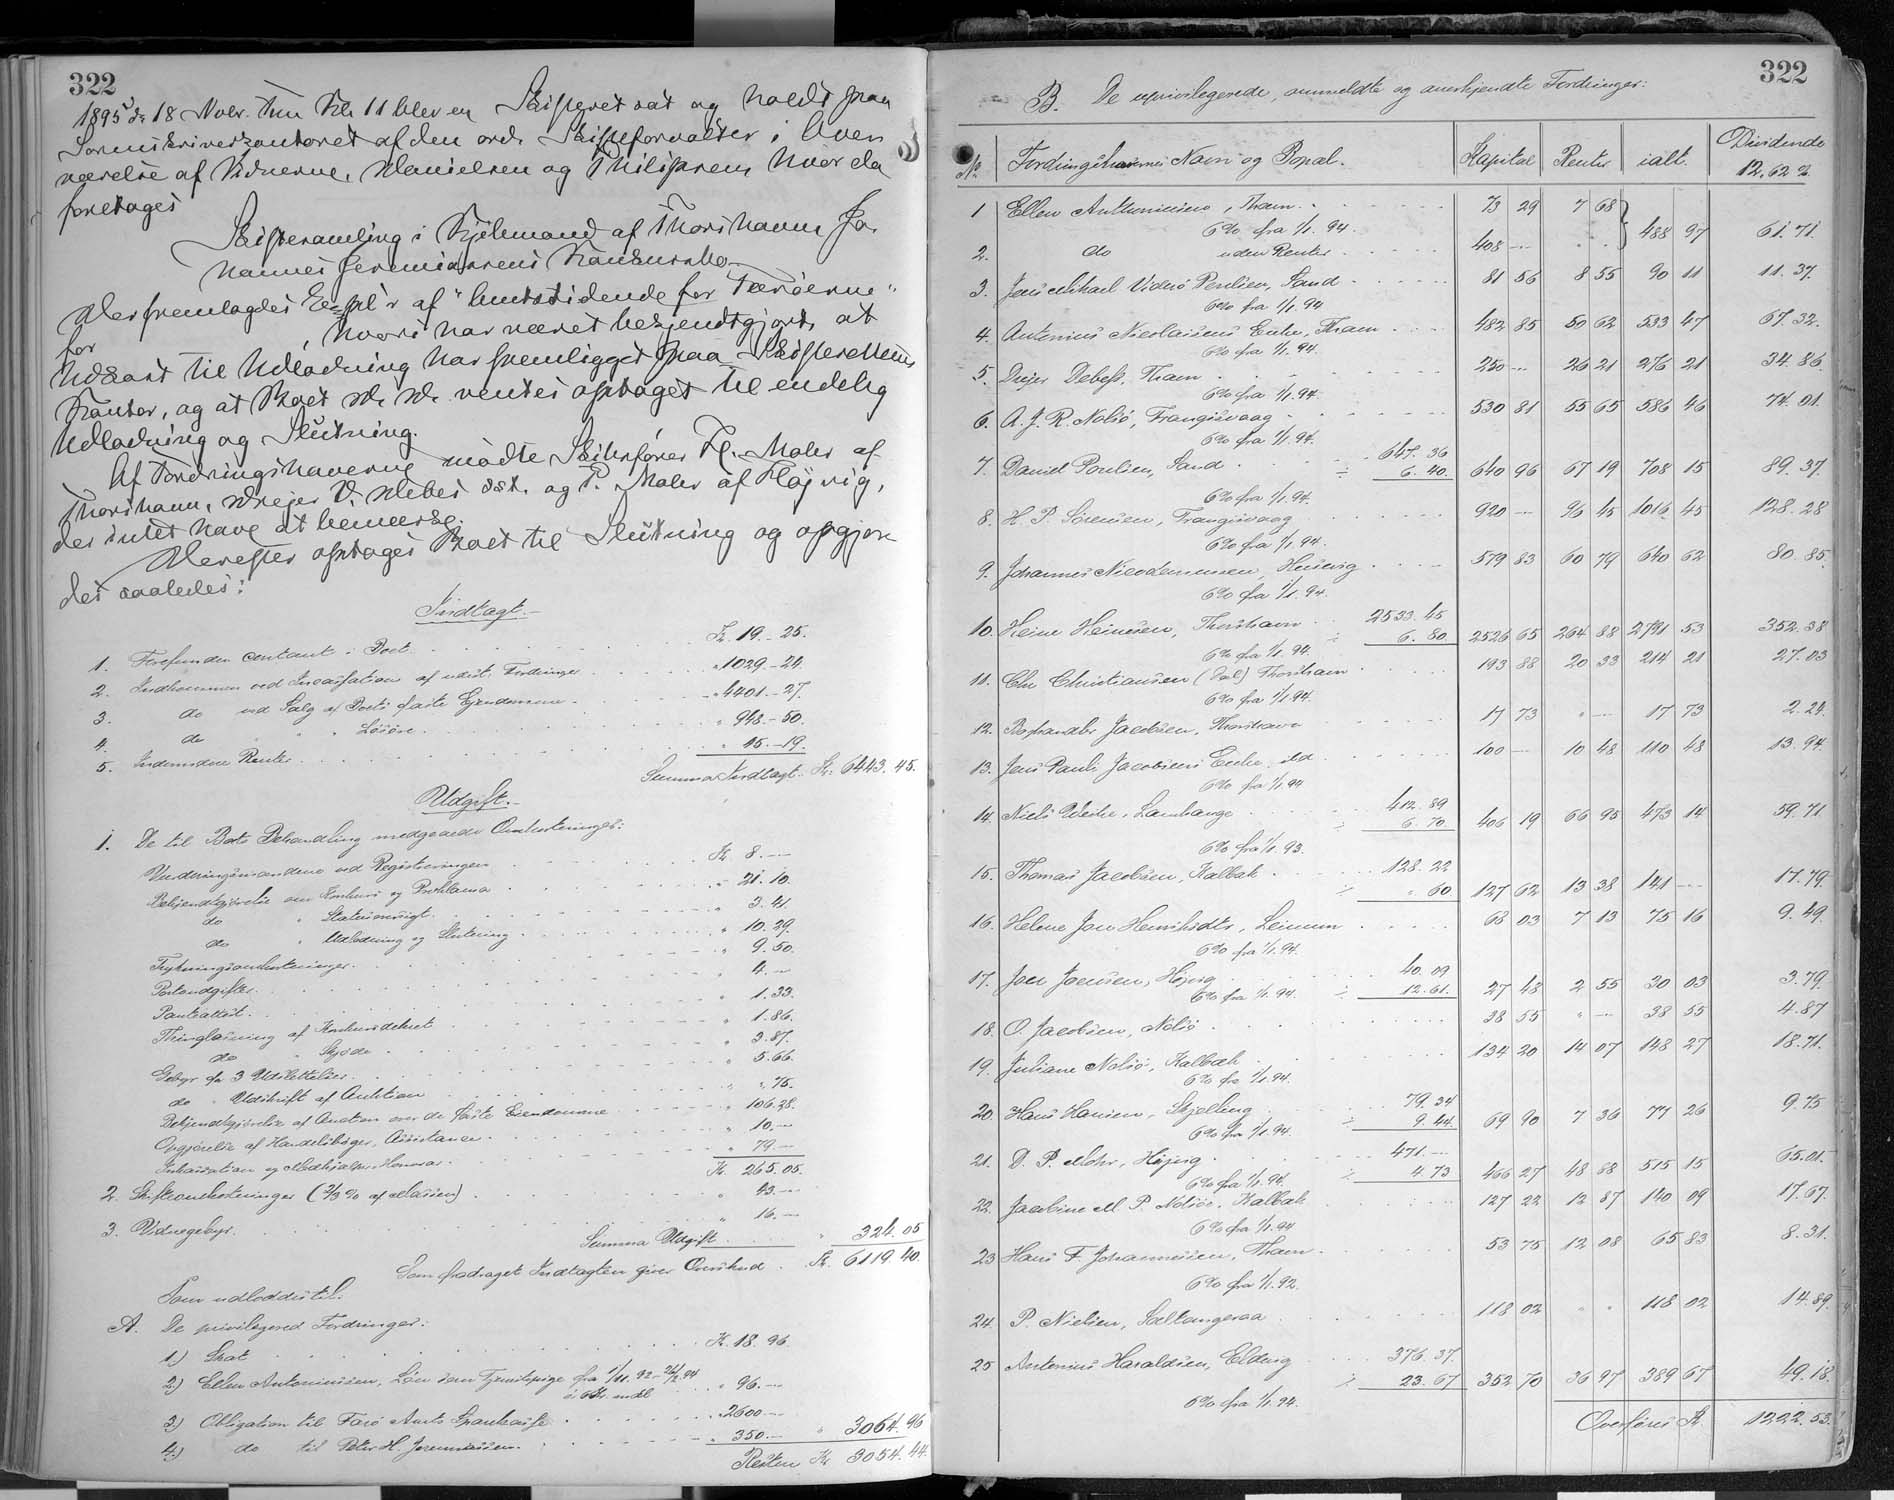 322
1895 d. 18 Novbr. Fm Kl. 11 blev en Skifteret sat og holdt paa
Sorenskriverkontoret af den ord. Skifteforvalter i Over
værelse af Vidnerne, Danielsen og Philipsen, hvor da
foretoges
Skiftesamling i Kjøbmand af Thorshavn Jo-
hannes Jeremiassens Konkursbo.
Der fremlagdes Expl'r af "Amtstidende for Færøerne"
for , hvori har været bekjendtgjort, at
Udkast til Udlodning har fremligget paa Skifterettens
Kontor, og at Boet vilde ventes optaget til endelig
Udlodning og Slutning.
Af Fordringshaverne mødte Sagfører Fr. Mohr af
Thorshavn, Drejer V. Debes sst. og P. Mohr af Højvig,
der intet have at bemærke.
Derefter optoges Boet til Slutning og opgjor
des saaledes:
Indtægt.
1. Forefunden contant i Boet Kr. 19.-25.
2. Indkommen ved Incassation af udest. Fordringer " 1029.-24.
3. do ved Salg af Boets faste Ejendomme " 4401.-27.
4. do " " Løsøre " 948.-50.
5. Indvundne Renter " 45.-19.
Summa Indtægt. Kr. 6443.45.
Udgift.
1. De til Boets Behandling medgaaede Omkostninger:
Vurderingsmændene ved Registreringen Kr. 8.-
Bekjendtgjørelse om Konkurs og Proklama " 21.10.
do " Statusoversigt " 3.41.
do " Udlodning og Slutning " 10.29.
Trykningsomkostninger " 9.50.
Portoudgifter " 4.-
Panteattest " 1.33.
Thinglæsning af Konkursdekret " 1.86.
do " Skjøde " 3.87.
Gebyr for 3 Udslettelser " 5.66.
do " Udskrift af Auktion " ".75.
Bekjendtgjørelse af Auction over de faste Ejendomme " 106.28.
Opgjørelse af Handelsbøger, Assistance " 10.-
Inkassation og Medhjælper-Honorar " 79.-
Kr. 265.05.
2. Skifteomkostninger (2/3 % af Massen) " 43.-
3. Vidnegebyr " 16.-
Summa Udgift " 324.05
Som fradraget Indtægten giver Overskud Kr. 6119.40.
Som udloddes til:
A. De privilegered Fordringer:
1.) Skat Kr. 18.96.
2) Ellen Antoniussen, Løn som Tjenestepige fra 1/11.92-
à 6 Kr. mdl. " 96.-
3) Obligation til Færø Amts Sparekasse " 2600.-
4) do til Peter H. Jeremiassen " 350.- " 3064.96
Resten Kr 3054.44.
322
B. De uprivilegerede, anmeldte og anerkjendte Fordringer:
No. Fordringshavernes Navn og Bopæl. Kapital Renter ialt. Dividende 12.62 %.
1 Ellen Antoniussen, Thavn 73 29 7 68
6% fra 1/1.94.
2. do uden Renter 408 - " " 488 97 61.71.
3. Jens Mikael Viderø Poulsen, Sand 81 56 8 55 90 11 11.37.
6% fra 1/1 94
4. Antonius Nicolaisens Enke, Thavn 482 85 50 62 533 47 67.32.
6% fra 1/1.94.
5. Drejer Debess, Thavn 250 - 26 21 276 21 34.86.
6% fra 1/1.94.
6. A. J. R. Nolsø, Trangisvaag 530 81 55 65 586 46 74.01.
6% fra 1/1.94.
7. David Poulsen, Sand 647.36
÷ 6.40 640 96 67 19 708 15 89.37.
6% fra 1/1.94.
8. H. P. Sørensen, Trangisvaag 920 - 96 45 1016 45 128.28
6% fra 1/1.94.
9. Johannes Nicodemussen, Husevig 579 83 60 79 640 62 80.85.
6% fra 1/1.94.
10. Heine Heinesen, Thorshavn 2533.45
÷ 6.80 2526 65 264 88 2791 53 352.38
6% fra 1/1.94.
11. Chr Christiansen Thorshavn 193 88 20 33 214 21 27.03
6% fra 1/1.94.
12. Boghandler Jacobsen, Thorshavn 17 73 " - 17 73 2.24.
13. Jens Pauli Jacobsens Enke, ibd 100 - 10 48 110 48 13.94.
6% fra 1/1 94
14. Niels Weihe, Lamhauge 412.89
÷ 6.70 406 19 66 95 473 14 59.71
6% fra 1/1.93.
15. Thomas Jacobsen, Kalbak 128.22
÷ ".60 127 62 13 38 141 - 17.79.
16. Helene Joen Henriksdtr, Leinum 68 03 7 13 75 16 9.49.
6% fra 1/1.94.
17. Joen Joensen, Højvig 40.09
6% fra 1/1.94. ÷ 12.61. 27 48 2 55 30 03 3.79.
18. O. Jacobsen, Nolsø 38 55 " - 38 55 4.87
19. Juliane Nolsø, Kalbak 134 20 14 07 148 27 18.71.
6% fra 1/1.94.
20. Hans Hansen, Skjelling 79.34
6% fra 1/1.94. ÷ 9.44. 69 90 7 36 77 26 9.75
21. D. P. Mohr, Højvig 471.-
6% fra 1/1.94. ÷ 4.73 466 27 48 88 515 15 65.01.
22. Jacobine M P. Nolsøe, Kalbak 127 22 12 87 140 09 17.67.
6% fra 1/1.94
23 Hans F. Johannessen, Thavn 53 75 12 08 65 83 8.31.
6% fra 1/1.92.
24. P. Nielsen, Saltangeraa 118 02 " " 118 02 14.89.
25 Antonius Haraldsen, Eldvig 376.37.
÷ 23.67 352 70 36 97 389 67 49.18.
6% fra 1/1.94.
Overføres Kr 1222.53.